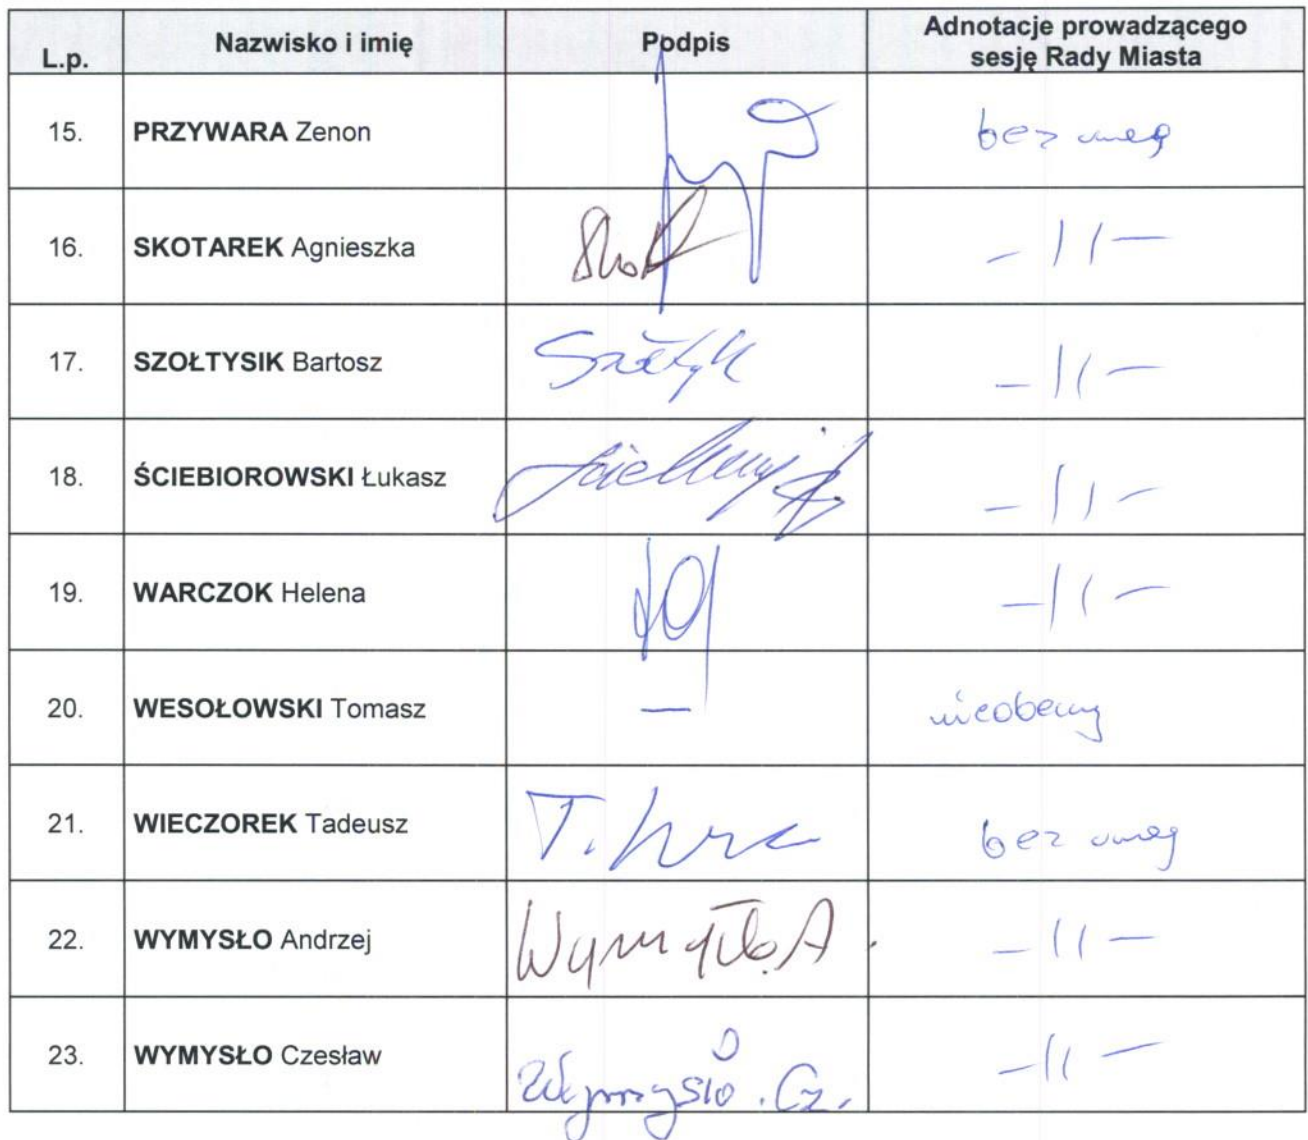 L.p. Nazwisko i imię Podpis Adnotacje prowadzącego
sesję Rady Miasta
15. PRZYWARA Zenon bez uwag
16. SKOTAREK Agnieszka Skot - 11 -
17. SZOŁTYSIK Bartosz - 11 -
18. ŚCIEBIOROWSKI Łukasz - 11 -
19. WARCZOK Helena - 11 -
20. WESOŁOWSKI Tomasz — nieobecny
21. WIECZOREK Tadeusz T. bez uwag
22. WYMYSŁO Andrzej Wymysło. A. - 11 -
23. WYMYSŁO Czesław Wymysło. Cz. - 11 -